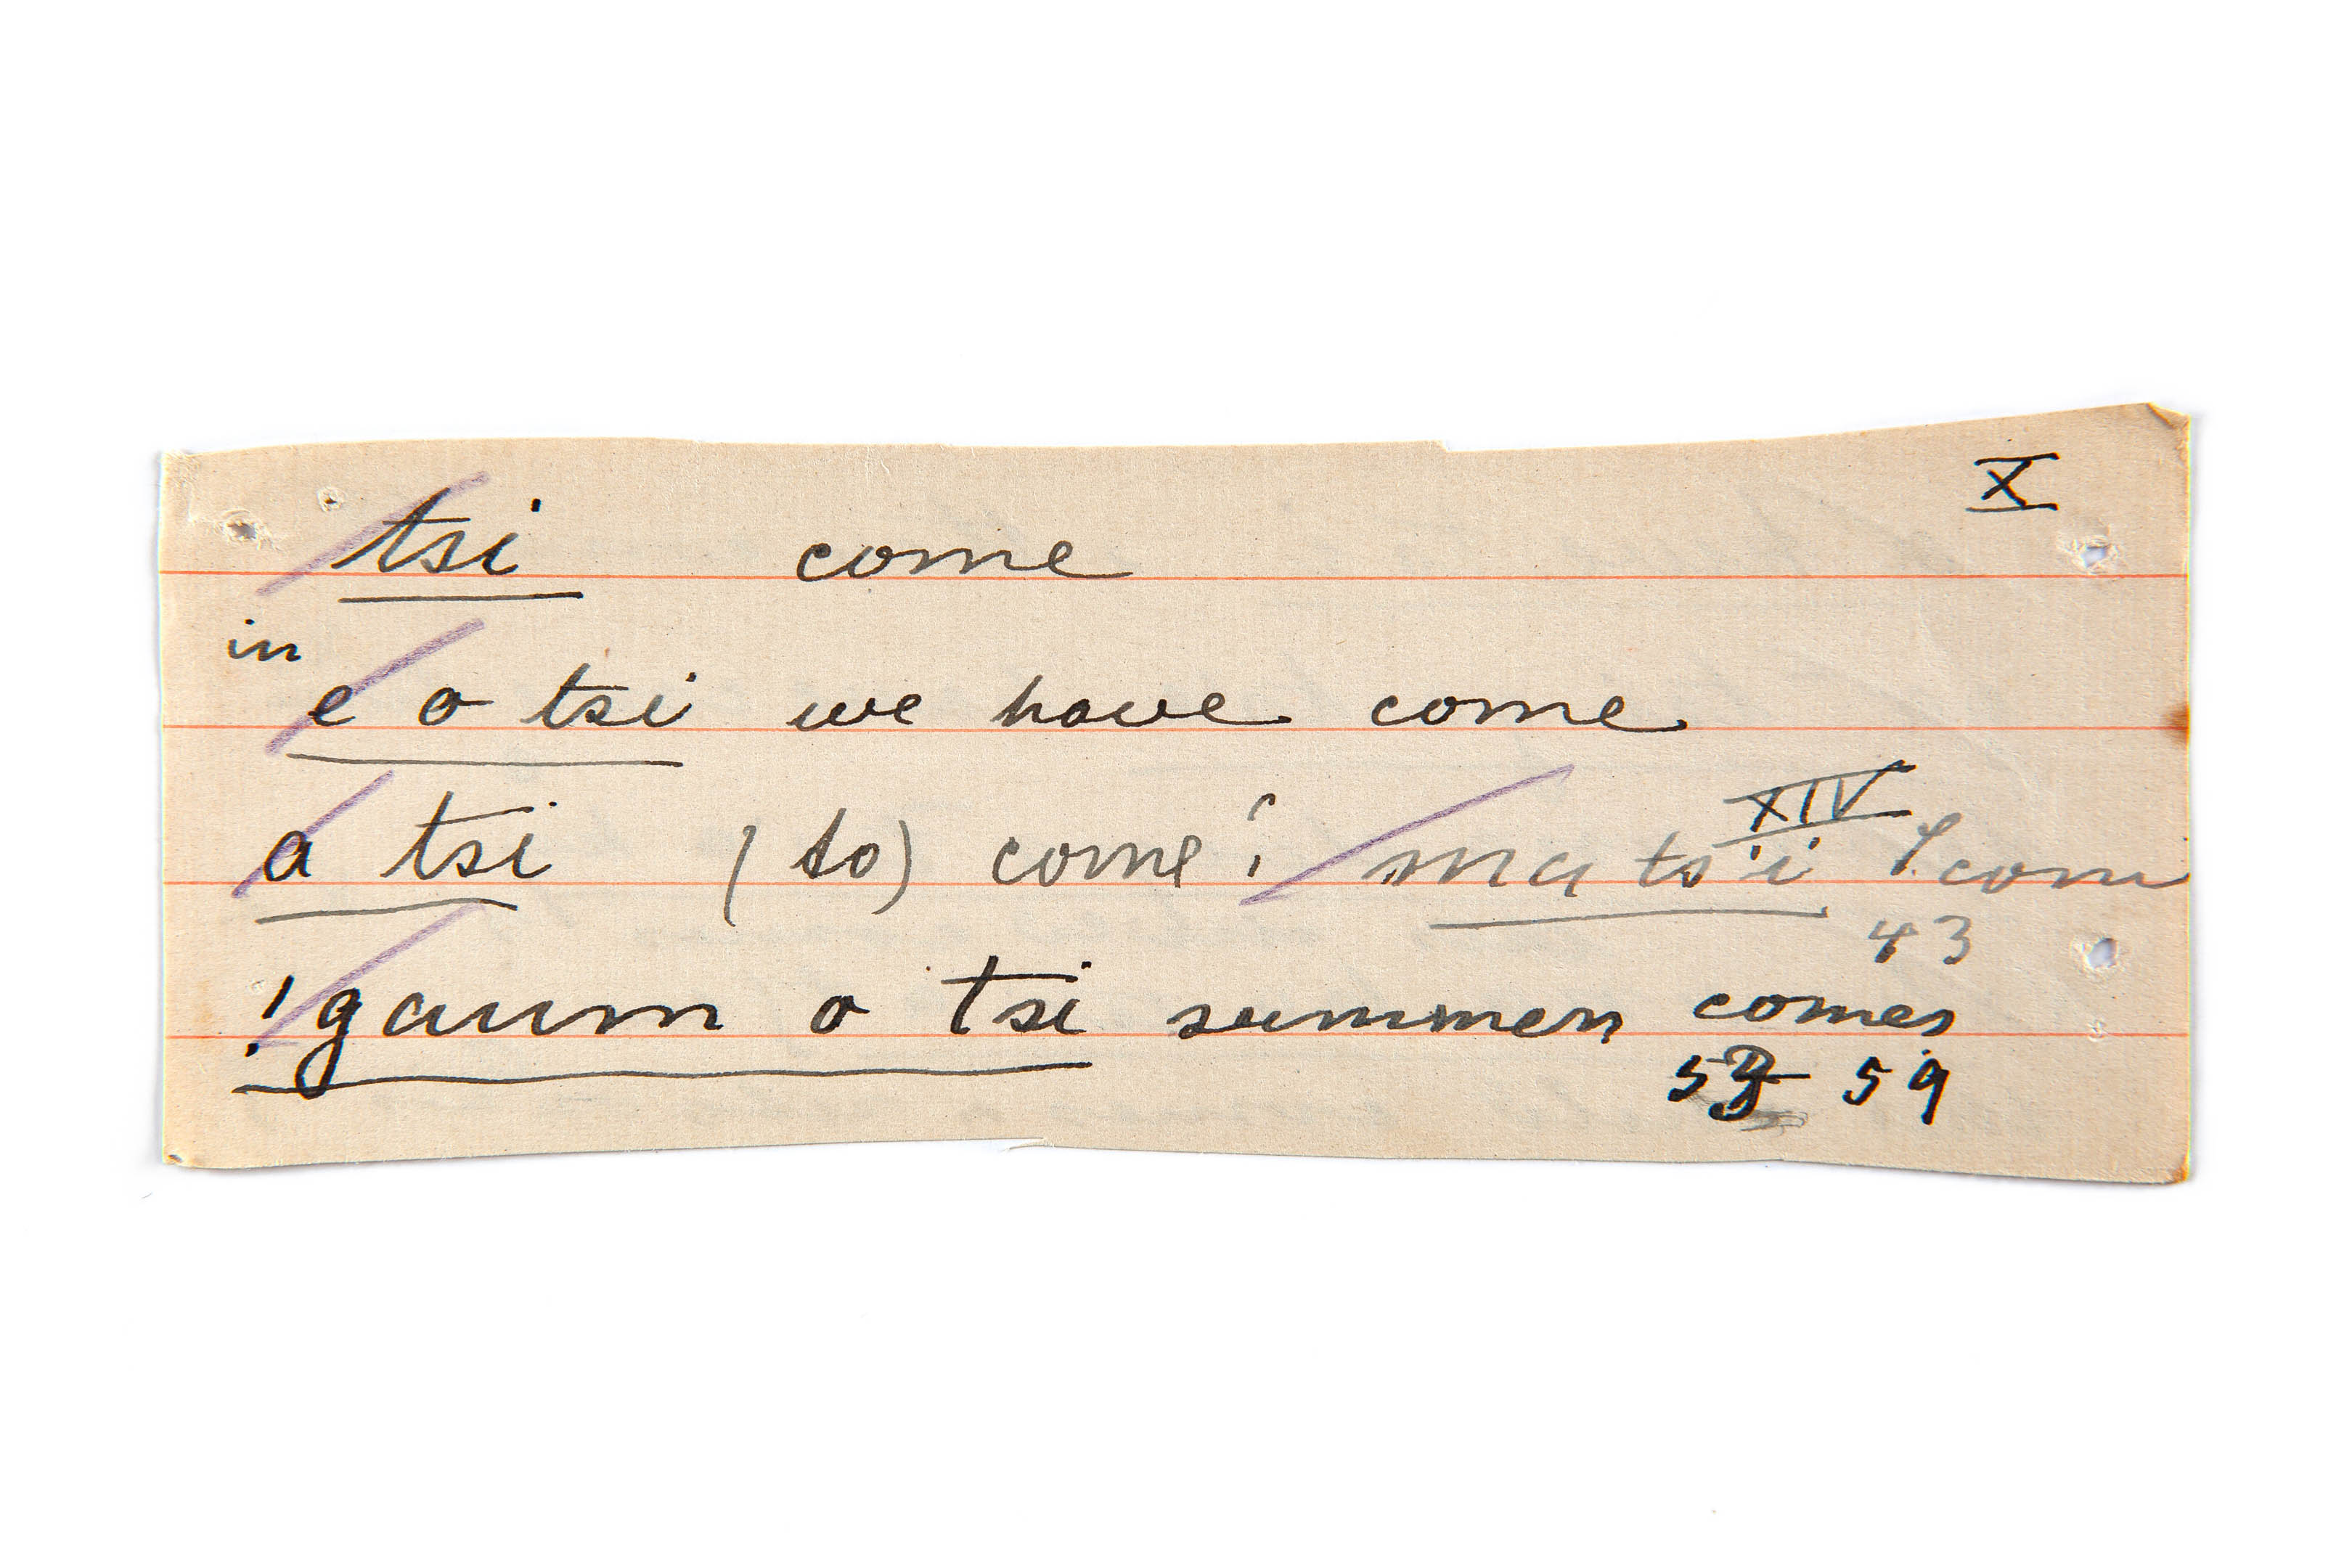 X
tsi come
in
e o tsi we have come
XIV
a tsi (to) come? ma ts'i I com
43
!gaum o tsi summer comes
59